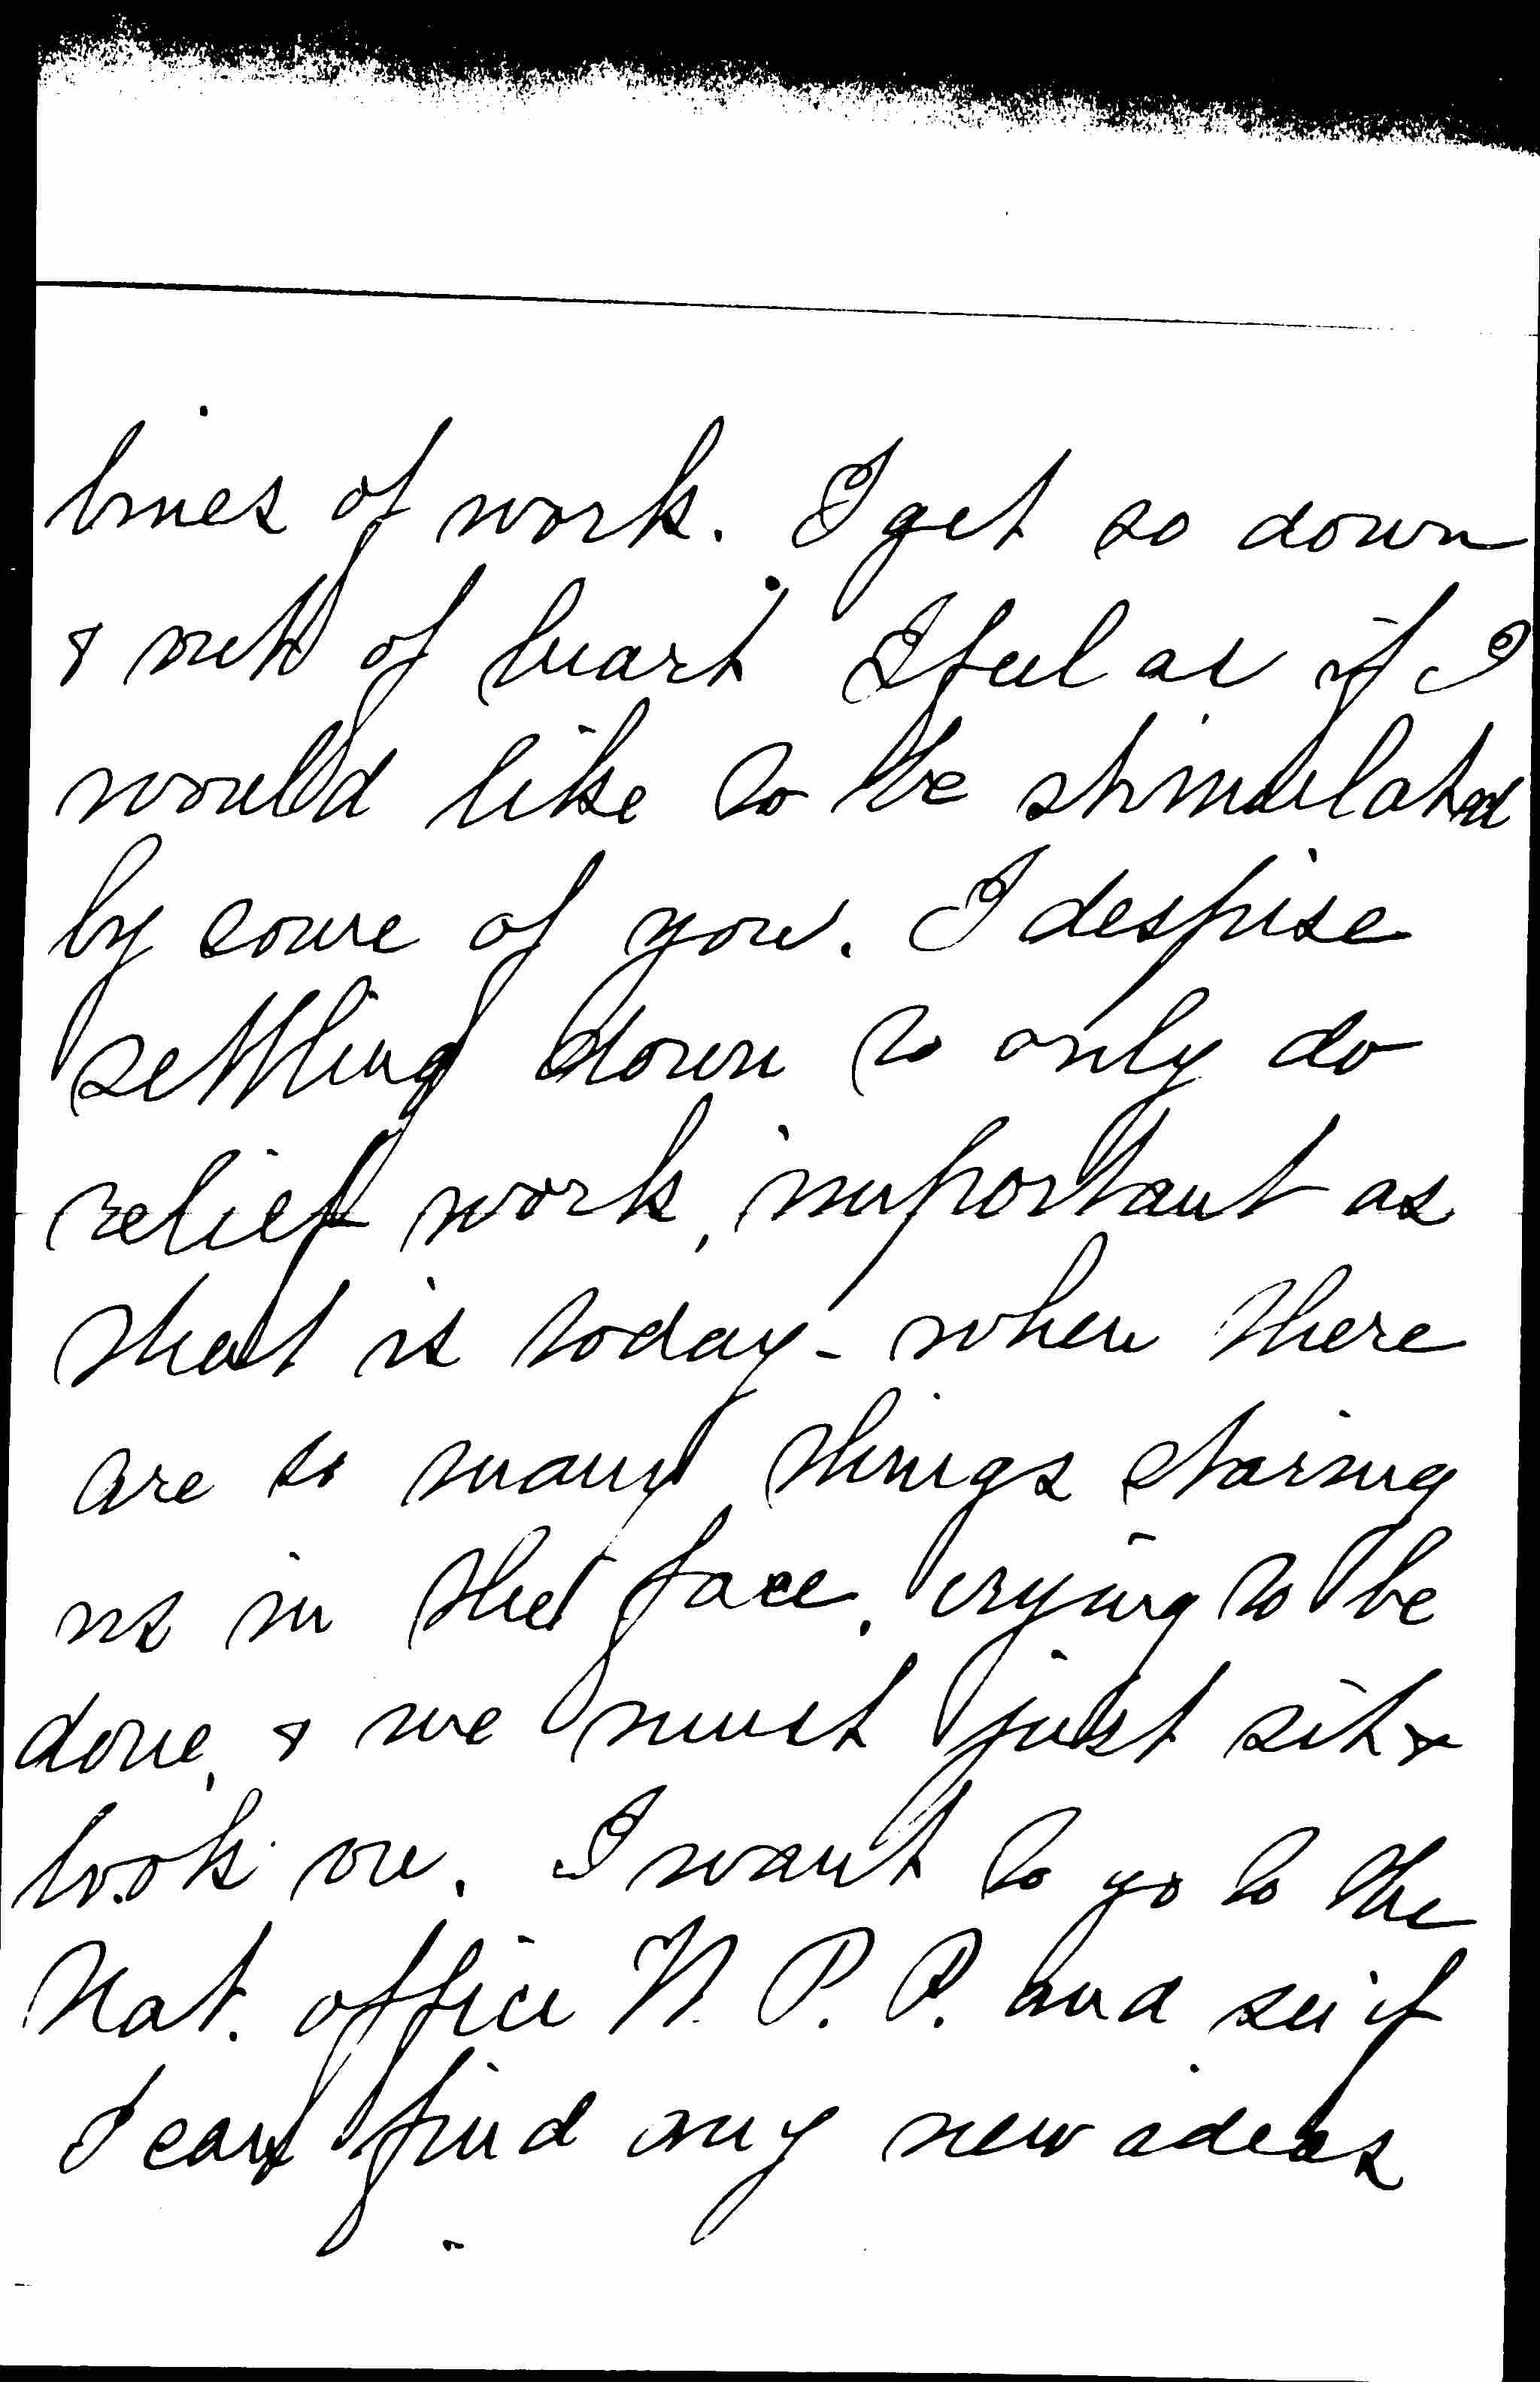 lines of work. I get so down
& sick of heart I feel as if I
would like to be stimulated
by some of you. I despise
settling down to only do
relief work, important as
that is today - when there
are so many things staring
us in the face, crying to be
done, & we must just sit &
look on. I want to go to the
Nat. office W. P. P. and see if
I can find any new ideas